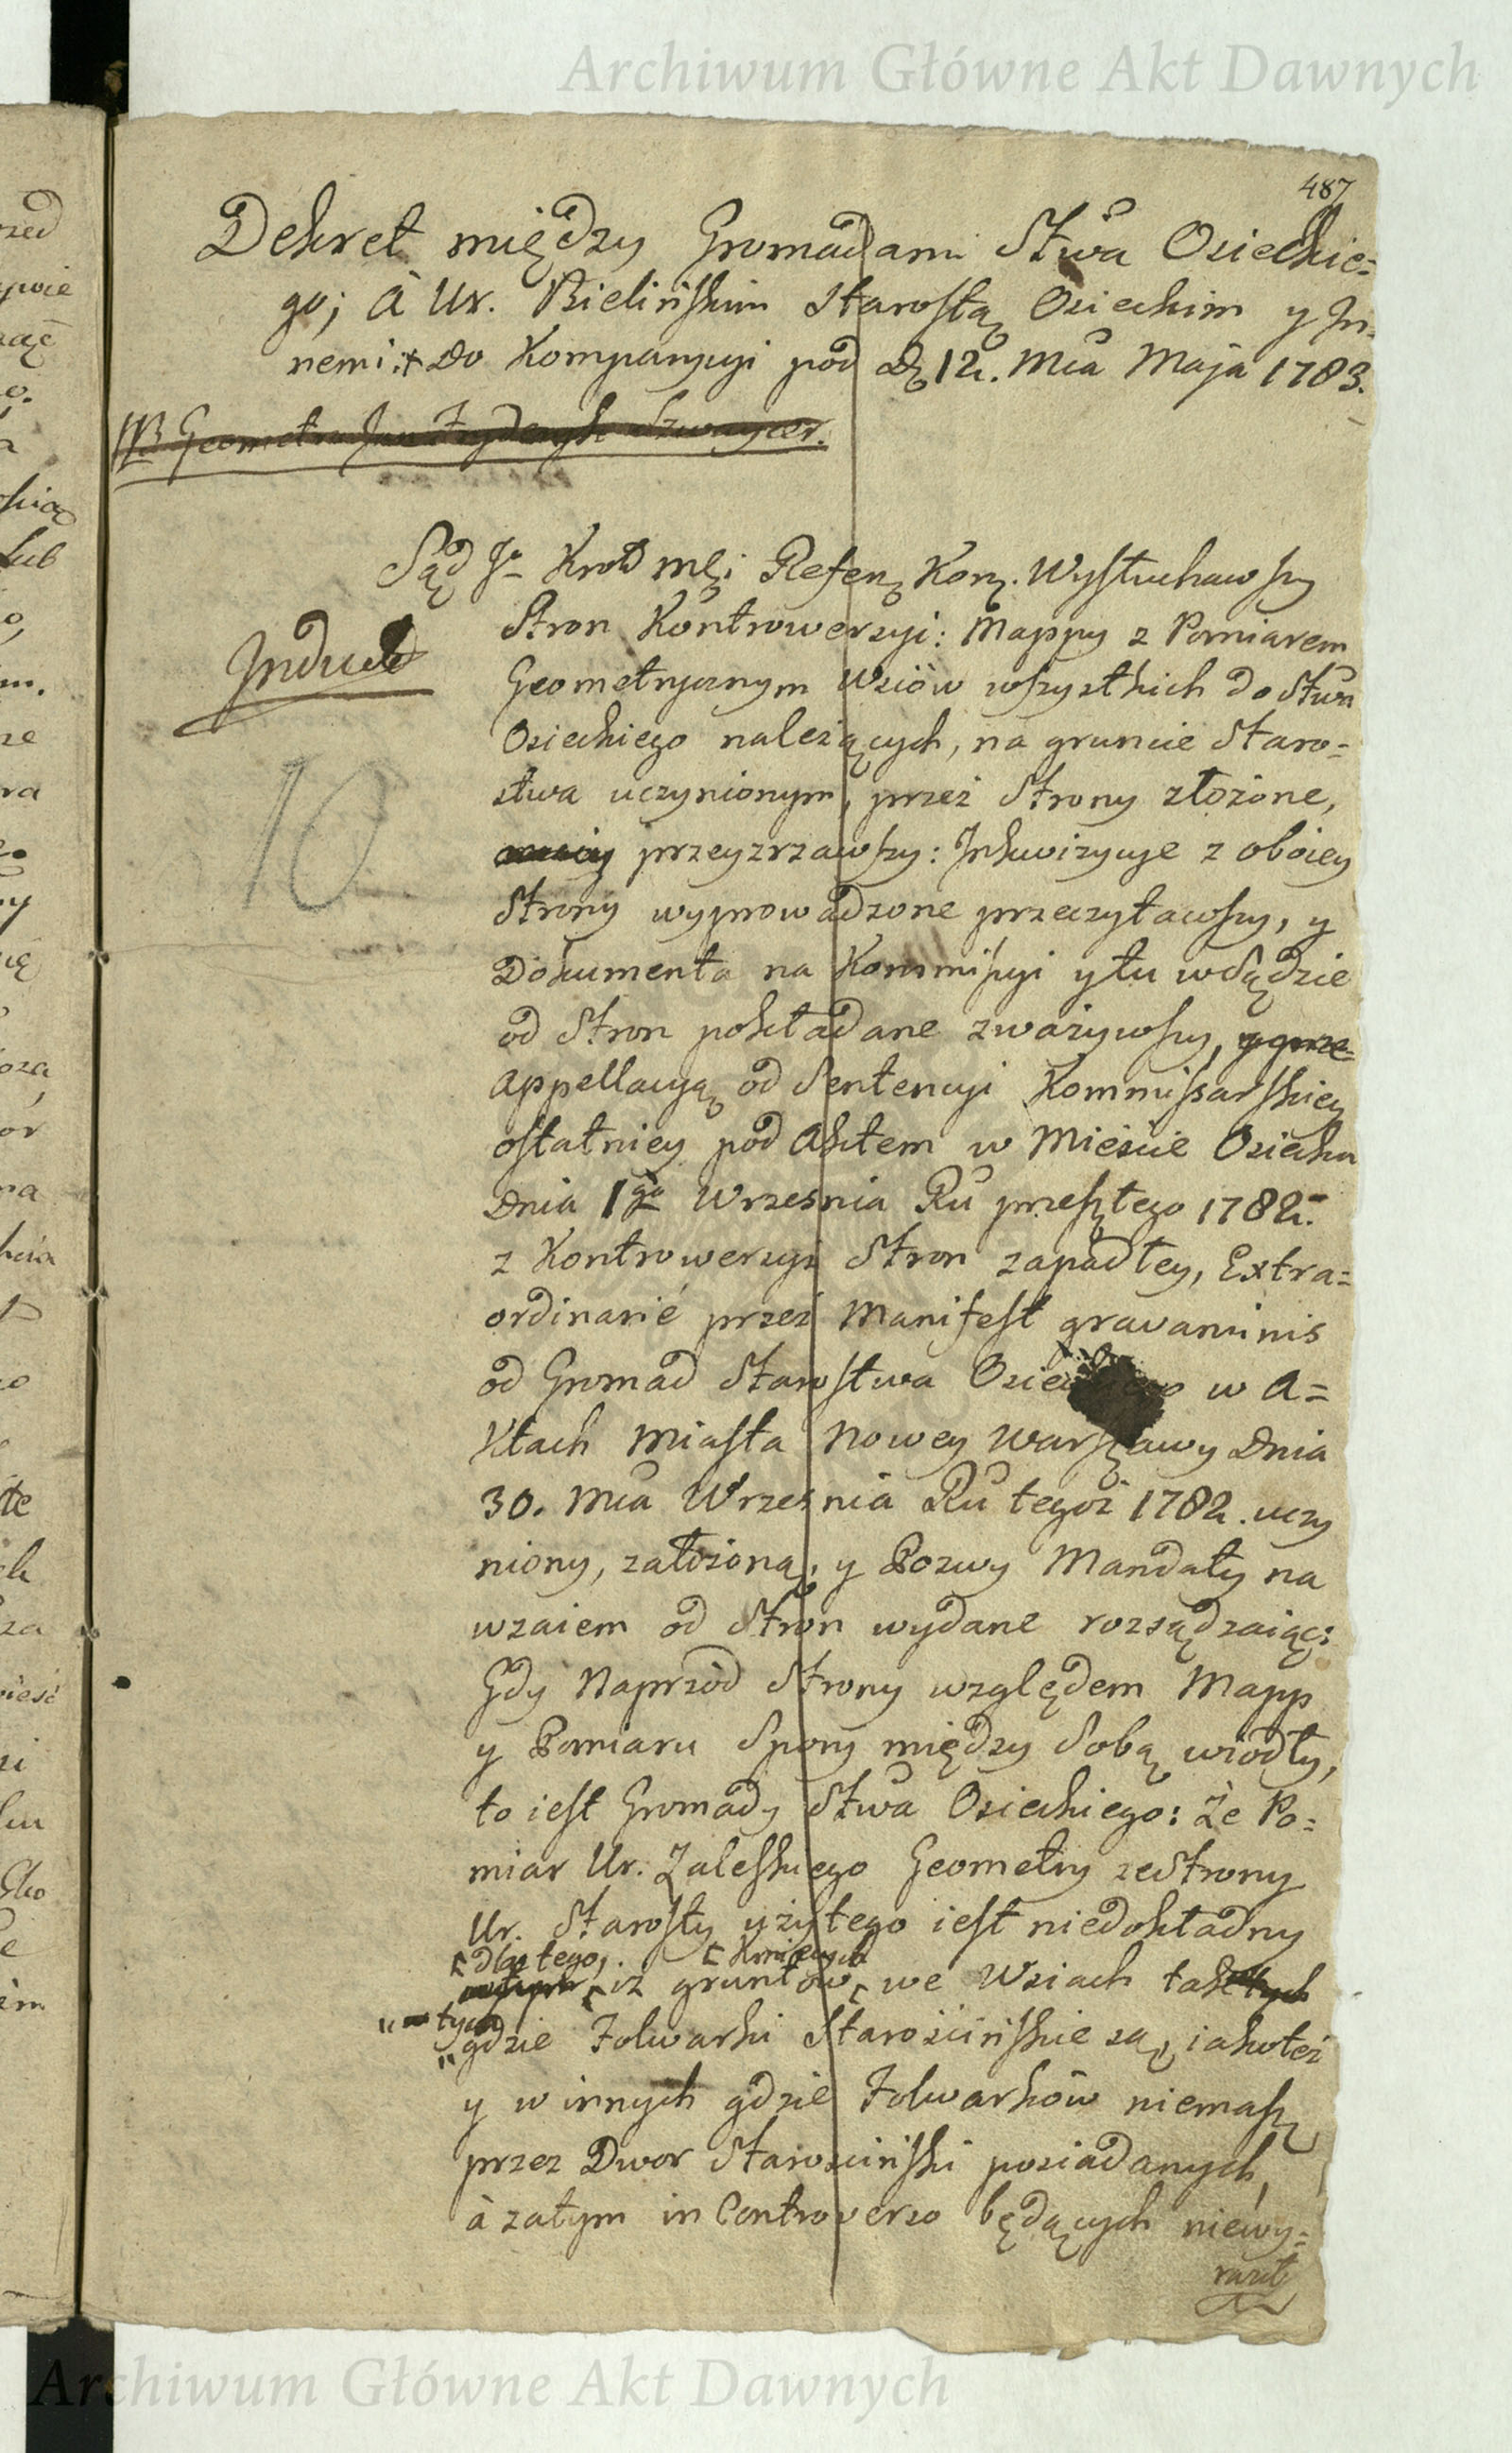 Archiwum Główne Akt Dawnych
487
Dekret między Gromadami Stwa Osieckie=
go; à Ur. Bielińskim Starostą Osieckim y In=
nemi :+ Do Kompanycyi pod d. 12. Mca Maja 1783.
NB Geometra Jan Frydrych Szwaycer.
Sąd Jo Krol mci Referen Kor. Wysłuchawszy
Induct
Stron Kontrowersyi: Mappy z Pomiarem
Geometrycznym Wsiów wszystkich do Stwa
Osieckiego należących, na gruncie Staro=
stwa uczynionym, przez Strony złożone,
10
przeyzrzawszy: Inkwizycye z oboiey
Strony wyprowadzone przeczytawszy, y
Dokumenta na Kommissyi y tu w Sądzie
od Stron pokładane zważywszy, y prze=
Appellacyą od Sentencyi Kommissarskiey
ostatniey pod Aktem w Mieście Osiecku
Dnia 1go Wrzesnia Ru przeszłego 1782.
z Kontrowersyi Stron zapadłey, Extra=
ordinarié przez Manifest gravaminis
od Gromad Starostwa Osieckiego w A=
Ktach Miasta Nowey Warszawy Dnia
30. Mca Wrzesnia Ru tegoż 1782. uczy
niony, założoną, y Pozwy Mandaty na
wzaiem od Stron wydane rozsądzaiąc:
Gdy Naprzód Strony względem Mapp
y Pomiaru Spory między Sobą wiodły,
to iest Gromady Stwa Osieckiego: Że Po=
miar Ur. Zaleskiego Geometry ze Strony
Ur. Starosty użytego iest niedokładny
dla tego, Kmiecych
iż gruntów we Wsiach tak tych
tych
gdzie Folwarki Starościńskie są, iakoteż
y w innych gdzie Folwarków niemasz
przez Dwor Starościński posiadanych,
à zatym in Controverso będących niewy=
raził
Archiwum Główne Akt Dawnych